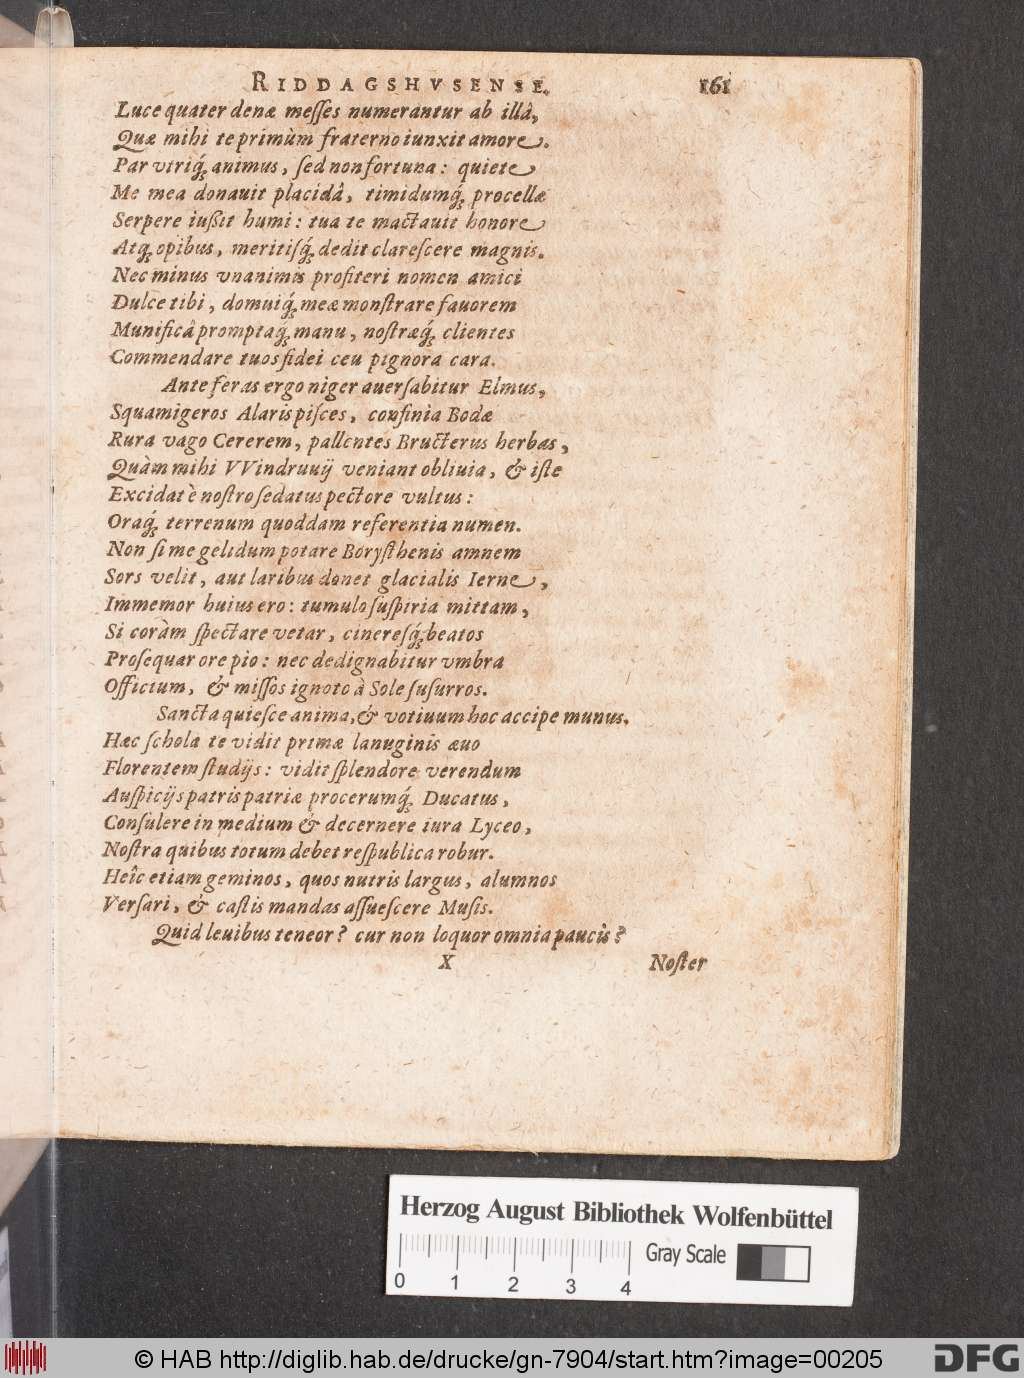 RIDDAGSHVSENSE. 161
Luce quater denæ meſſes numerantur ab illâ,
Quæ mihi te primùm fraterno iunxit amore.
Par vtriq́ꝫ animus, ſed non fortuna: quiete
Me mea donauit placidâ, timidumq́ꝫ procellæ
Serpere iußit humi: tua te mactauit honore
Atqꝫ opibus, meritiſq́ꝫ dedit clareſcere magnis.
Nec minus vnanimis profiteri nomen amici
Dulce tibi, domuiq́ꝫ meæ monſtrare fauorem
Munificâ promptaq́ꝫ manu, noſtræq́ꝫ clientes
Commendare tuos fidei ceu pignora cara.
Ante feras ergo niger auerſabitur Elmus,
Squamigeros Alaris piſces, confinia Bodæ
Rura vago Cererem, pallentes Bructerus herbas,
Quàm mihi VVindruuij veniant obliuia, & iſte
Excidat è noſtro ſedatus pectore vultus:
Oraq́ꝫ terrenum quoddam referentia numen.
Non ſi me gelidum potare Boryſthenis amnem
Sors velit, aut laribus donet glacialis Ierne,
Immemor huius ero: tumulo ſuſpiria mittam,
Si coràm ſpectare vetar, cinereſq́ꝫ beatos
Proſequar ore pio: nec dedignabitur vmbra
Officium, & miſſos ignoto à Sole ſuſurros.
Sancta quieſce anima, & votiuum hoc accipe munus.
Hæc ſchola te vidit primæ lanuginis æuo
Florentem ſtudijs: vidit ſplendore verendum
Auſpicijs patris patriæ procerumq́ꝫ Ducatus,
Conſulere in medium & decernere iura Lyceo,
Noſtra quibus totum debet reſpublica robur.
Heîc etiam geminos, quos nutris largus, alumnos
Verſari, & caſtis mandas aſſueſcere Muſis.
Quid leuibus teneor? cur non loquor omnia paucis?
X Noſter
Herzog August Bibliothek Wolfenbüttel
Gray Scale
0 1 2 3 4
© HAB http://diglib.hab.de/drucke/gn-7904/start.htm?image=00205
DFG